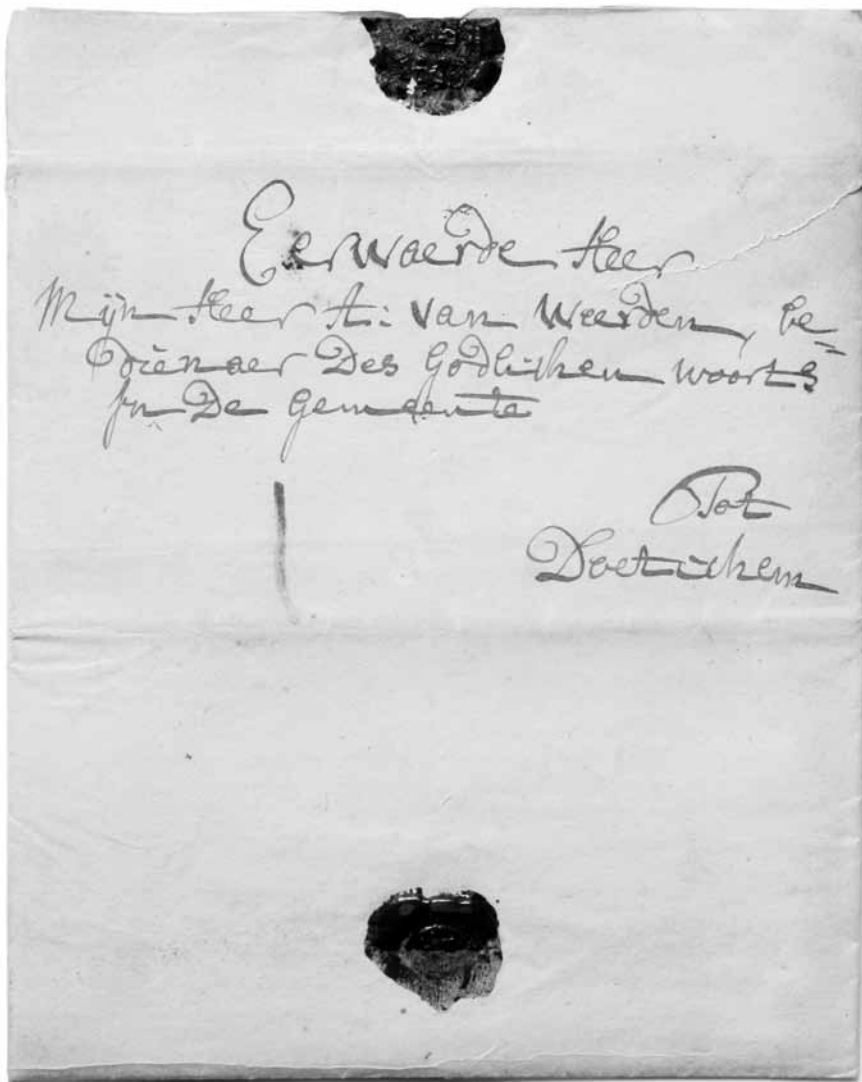 Eerwaerde Heer
Mijn Heer A: van Weerden, be=
dienaer Des Godlicken woorts
in De Gemeente
Tot
Doetichem